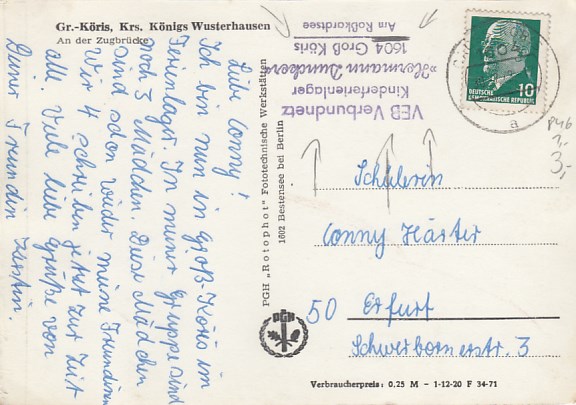 Gr.-Köris, Krs. Königs Wusterhausen
An der Zugbrücke
Liebe Conny!
Ich bin nun in Groß-Köris im
Ferienlager. In meiner Gruppe sind
noch 3 Mädchen. Diese Mädchen
sind schon wieder meine Freundinnen
Wir 4 schreiben jetzt zur Zeit
alle. Viele liebe Grüße von
Deiner Freundin Kerstin.
PGH „Rotophot" Fototechnische Werkstätten
1602 Bestensee bei Berlin
PGH
VEB Verbundnetz
Kinderferienlager
»Hermann Duncker«
1604 Groß Köris
Am Roßkardtsee
DEUTSCHE
DEMOKRATISCHE REPUBLIK
10
a
3,-
Schülerin
Conny Härter
50 Erfurt
Schwerbornerstr. 3
Verbraucherpreis: 0,25 M - 1-12-20 F 34-71